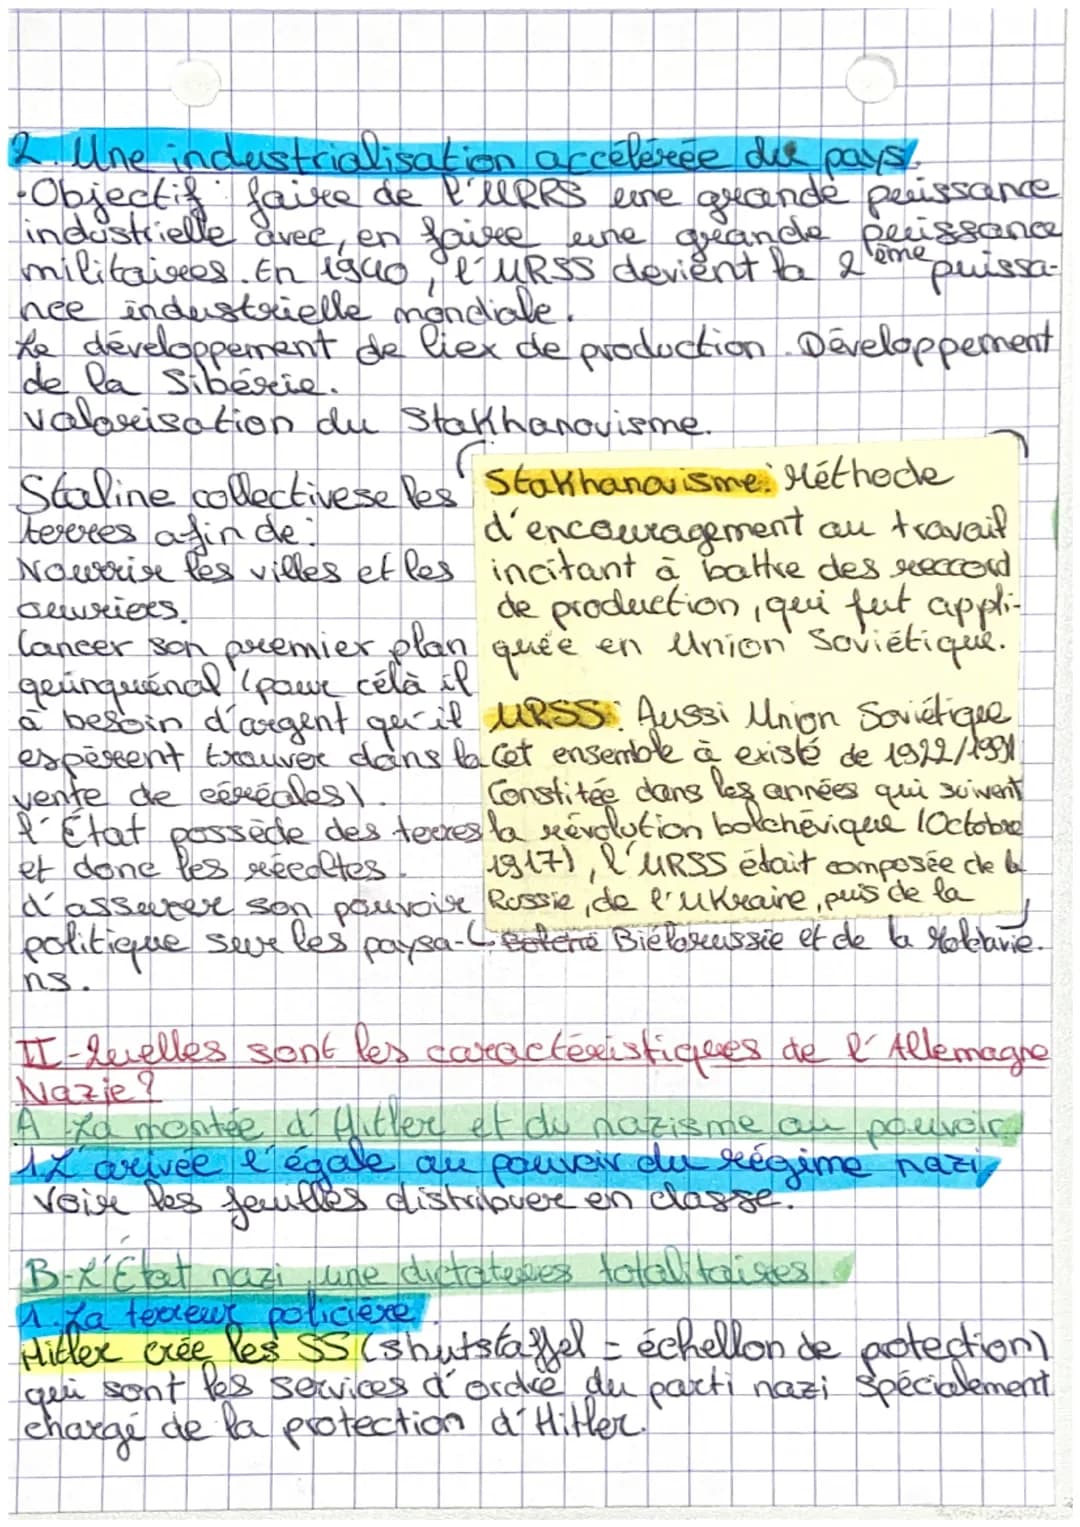 2. Une industrialisation accélérée du pays.
•Objectif : faire de l'URRS une grande puissance
industrielle avec, en faire une grande puissance
militaires. En 1940, l'URSS devient la 2ème puissa-
nce industrielle mondiale.
Le développement de liex de production. Développement
de la Sibérie.
valorisation du Stakhanovisme.
Staline collectivese les
terres afin de :
Nourrir les villes et les
ouvriers.
lancer son premier plan
quinquénal (pour célà il
à besoin d'argent qu'il
espèrent trouver dans la
vente de céréales).
l'État possède des terres
et donc les récoltes.
d'assurer son pouvoir
politique sur les paysa-
ns.
Stakhanovisme : Méthode
d'encouragement au travail
incitant à battre des reccord
de production, qui fut appli-
quée en Union Soviétique.
URSS : Aussi Union Soviétique
Cet ensemble à existé de 1922/1991
Constitée dans les années qui suivent
la révolution bolchévique (Octobre
1917), l'URSS était composée de la
Russie, de l'Ukraine, puis de la
Biélorussie et de la Moldavie.
II - Quelles sont les caractéristiques de l'Allemagne
Nazie ?
A - La montée d'Hitler et du nazisme au pouvoir.
1. L'arivée l'égale au pouvoir du régime nazi,
Voir les feuilles distribuer en classe.
B - L'État nazi, une dictatures totalitaires.
1. La terreur policière
Hitler crée les SS (shutstaffel = échellon de protection)
qui sont les services d'ordre du parti nazi spécialement
chargé de la protection d'Hitler.